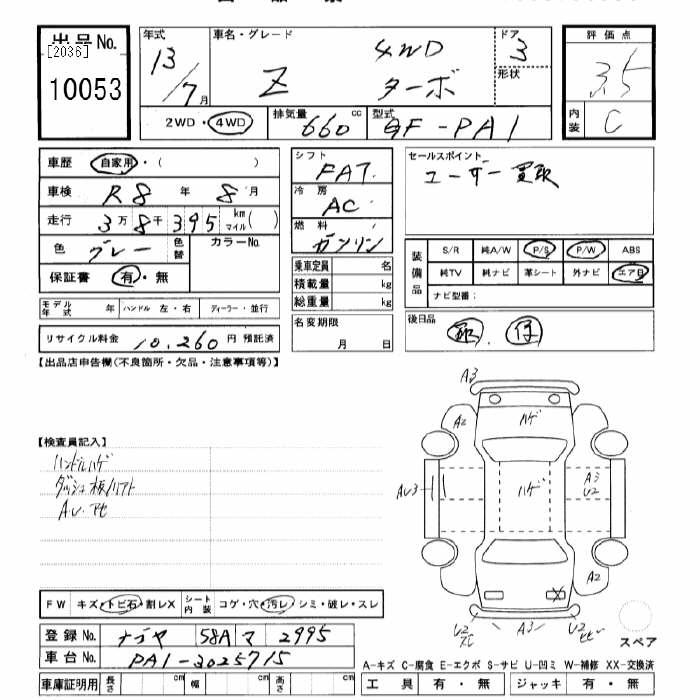 出品No.
[2036]
10053
年式
13/7月
車名・グレード
Z
4WD
ターボ
ドア
3
形状
2WD・4WD
排気量
660cc
型式
GF-PA1
評価点
3.5
内装
C
車歴 自家用・( )
車検 R8年 8月
走行 3万8千395 km マイル( )
色 グレー 色替 カラーNo.
保証書 有・無
モデル年式 年 ハンドル 左・右 ディーラー・並行
リサイクル料金 10,260 円 預託済
シフト
FAT
冷房
AC
燃料
ガソリン
乗車定員 名
積載量 kg
総重量 kg
名変期限
月 日
セールスポイント
ユーザー買取
装備品
S/R 純A/W P/S P/W ABS
純TV 純ナビ 革シート 外ナビ エアB
ナビ型番:
後日品
【出品店申告欄(不良箇所・欠品・注意事項等)】
【検査員記入】
ハンドルハゲ
A3
A2
ハゲ
ハゲ
A3
U2
A2
A3
FW キズ・トビ石・割レX シート内装 コゲ・穴・汚レ・シミ・破レ・スレ
登録No. ナゴヤ 58A マ 2995
車台No. PA1-2025715
車庫証明用 長さ cm 幅 cm 高さ cm
スペア
A-キズ C-腐食 E-エクボ S-サビ U-凹ミ W-補修 XX-交換済
工具 有・無 ジャッキ 有・無